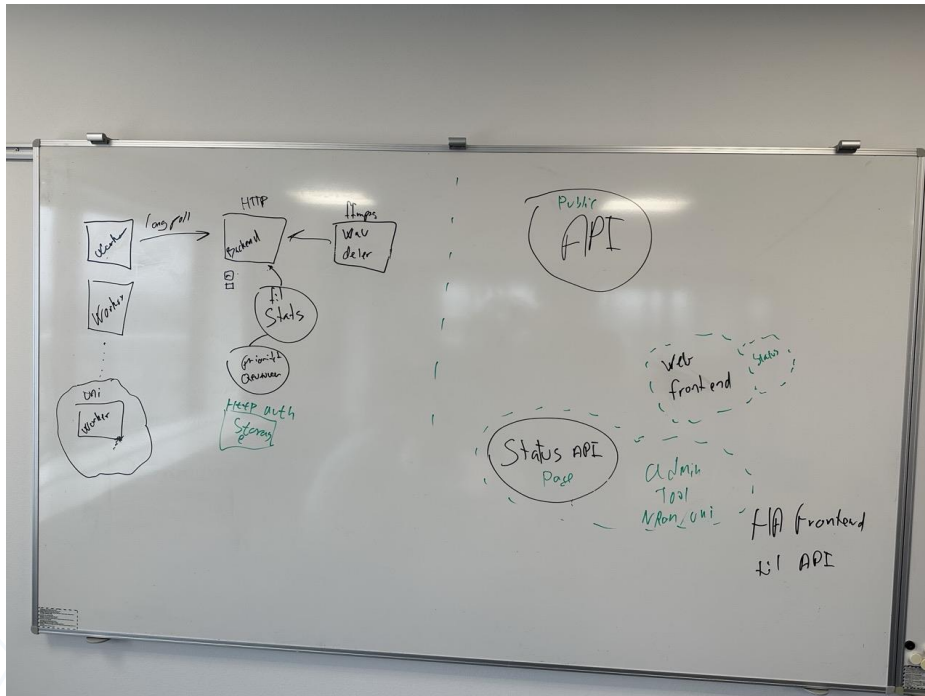 Worker
long poll
HTTP
Backend
ffmpeg
wav
deler
Worker
fil
Stats
uni
Worker
HTTP auth
Storage
Public
API
Web
frontend
Status
Status API
Page
Admin
Tool
uni
HA frontend
til API